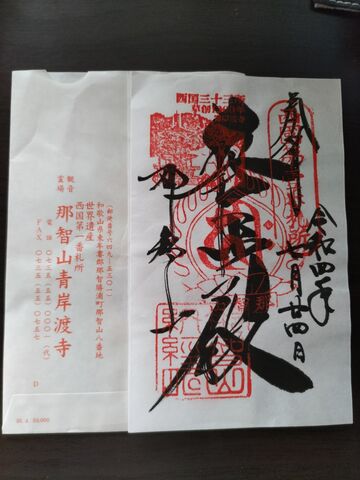 奉拝
令和四年
七月廿四日
西国三十三所
普照殿
那智山
(郵便番号六四九-五三〇一)
和歌山県東牟婁郡那智勝浦町那智山八番地
世界遺産
西国第一番札所
観音霊場
那智山青岸渡寺
電話 〇七三五(五五)〇〇〇一(代)
FAX 〇七三五(五五)〇七五七
D